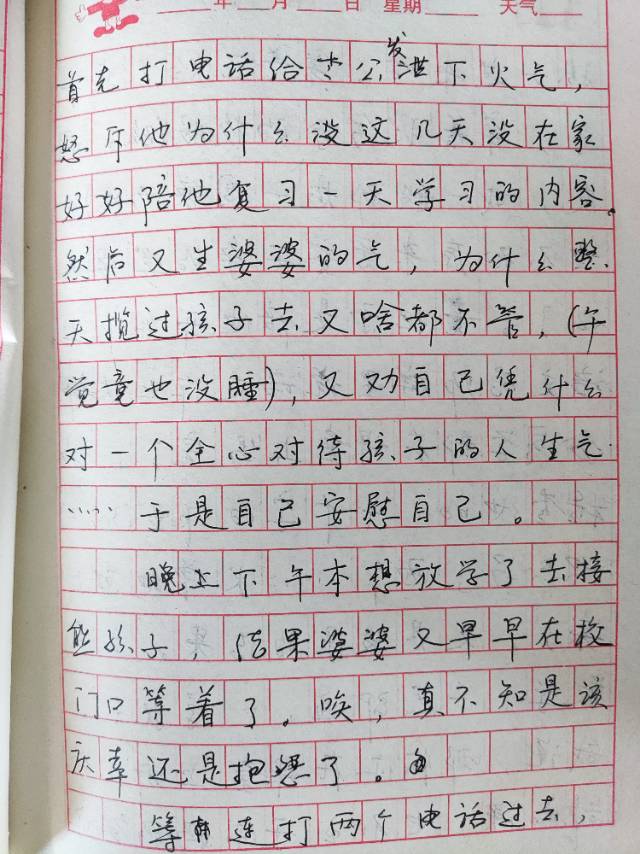 年 月 日 星期 天气
首先打电话给老公发泄下火气，
怒斥他为什么没这几天没在家
好好陪他复习一天学习的内容。
然后又生婆婆的气，为什么整
天揽过孩子去又啥都不管，(午
觉竟也没睡)，又劝自己凭什么
对一个全心对待孩子的人生气
……于是自己安慰自己。
晚上下午本想放学了去接
熊孩子，结果婆婆又早早在校
门口等着了。唉，真不知是该
庆幸还是抱怨了。
等 连打两个电话过去，